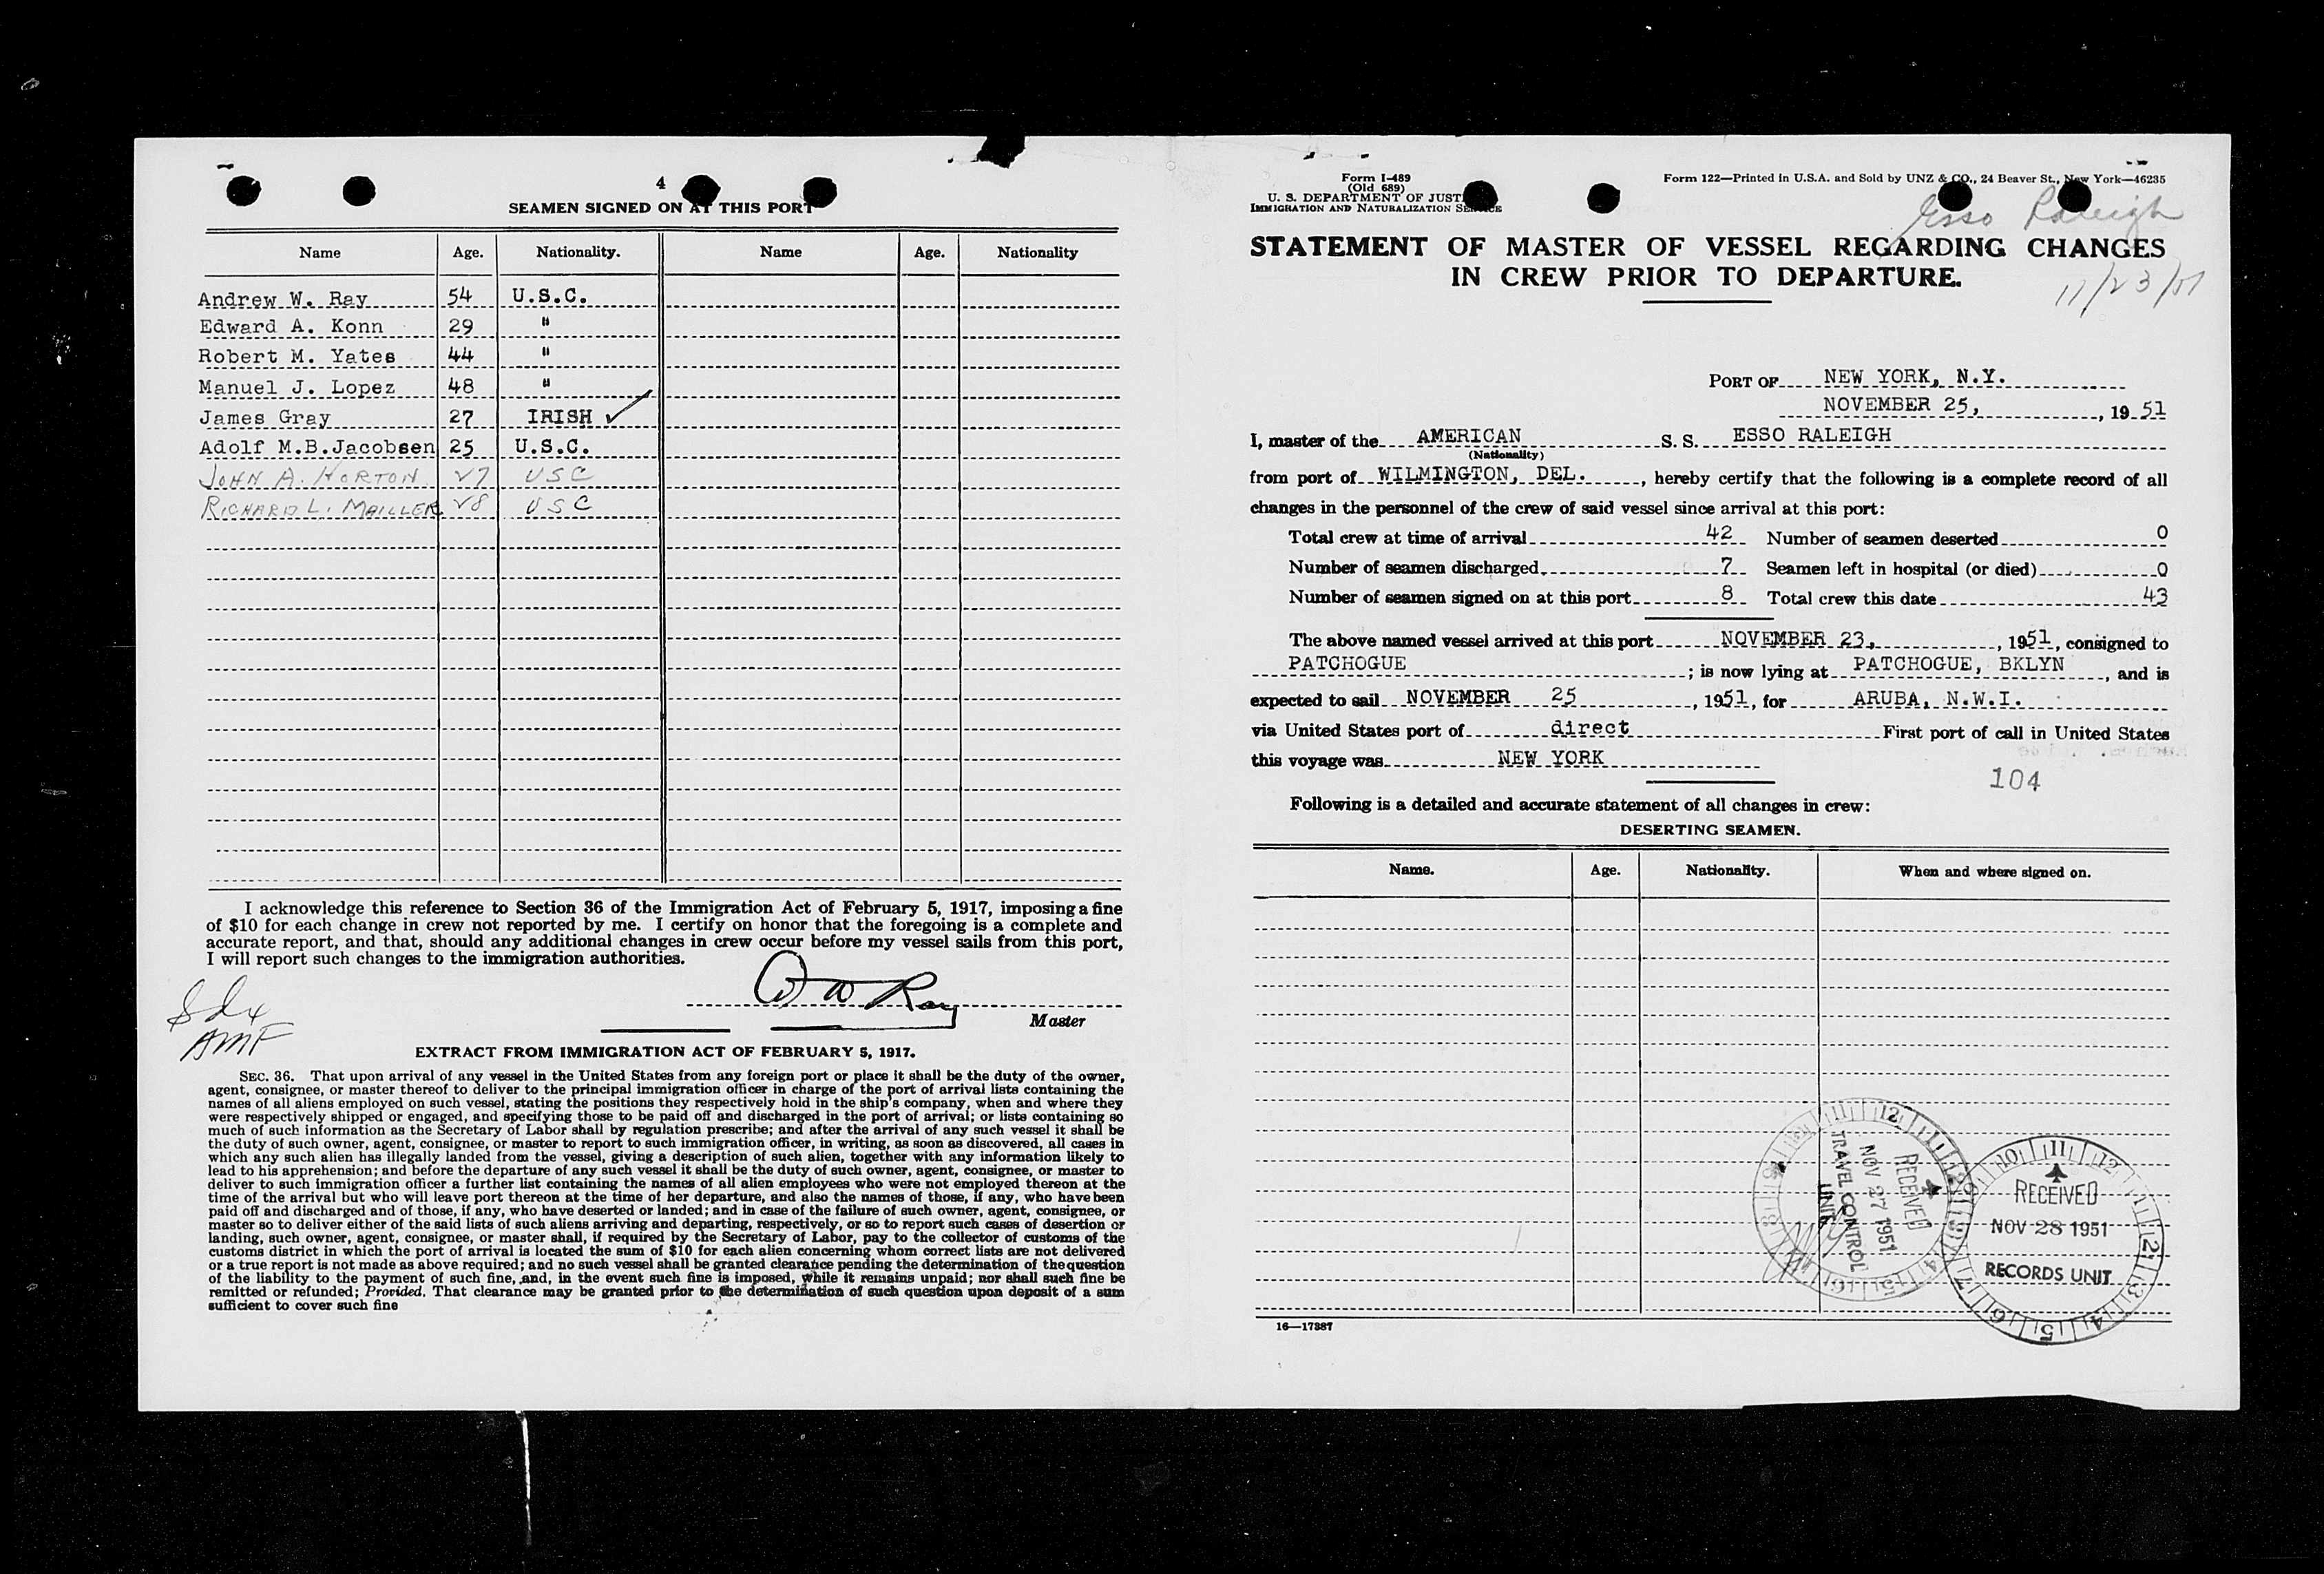 4
SEAMEN SIGNED ON AT THIS PORT
Name Age. Nationality. Name Age. Nationality
Andrew W. Ray 54 U.S.C.
Edward A. Konn 29 "
Robert M. Yates 44 "
Manuel J. Lopez 48 "
James Gray 27 IRISH ✓
Adolf M.B.Jacobsen 25 U.S.C.
JOHN A. HORTON 27 USC
RICHARD L. MAILLER 28 USC
I acknowledge this reference to Section 36 of the Immigration Act of February 5, 1917, imposing a fine
of $10 for each change in crew not reported by me. I certify on honor that the foregoing is a complete and
accurate report, and that, should any additional changes in crew occur before my vessel sails from this port,
I will report such changes to the immigration authorities.
A W Ray
Master
AMF
EXTRACT FROM IMMIGRATION ACT OF FEBRUARY 5, 1917.
SEC. 36. That upon arrival of any vessel in the United States from any foreign port or place it shall be the duty of the owner,
agent, consignee, or master thereof to deliver to the principal immigration officer in charge of the port of arrival lists containing the
names of all aliens employed on such vessel, stating the positions they respectively hold in the ship's company, when and where they
were respectively shipped or engaged, and specifying those to be paid off and discharged in the port of arrival; or lists containing so
much of such information as the Secretary of Labor shall by regulation prescribe; and after the arrival of any such vessel it shall be
the duty of such owner, agent, consignee, or master to report to such immigration officer, in writing, as soon as discovered, all cases in
which any such alien has illegally landed from the vessel, giving a description of such alien, together with any information likely to
lead to his apprehension; and before the departure of any such vessel it shall be the duty of such owner, agent, consignee, or master to
deliver to such immigration officer a further list containing the names of all alien employees who were not employed thereon at the
time of the arrival but who will leave port thereon at the time of her departure, and also the names of those, if any, who have been
paid off and discharged and of those, if any, who have deserted or landed; and in case of the failure of such owner, agent, consignee, or
master so to deliver either of the said lists of such aliens arriving and departing, respectively, or so to report such cases of desertion or
landing, such owner, agent, consignee, or master shall, if required by the Secretary of Labor, pay to the collector of customs of the
customs district in which the port of arrival is located the sum of $10 for each alien concerning whom correct lists are not delivered
or a true report is not made as above required; and no such vessel shall be granted clearance pending the determination of the question
of the liability to the payment of such fine, and, in the event such fine is imposed, while it remains unpaid; nor shall such fine be
remitted or refunded; Provided, That clearance may be granted prior to the determination of such question upon deposit of a sum
sufficient to cover such fine
Form I-489
(Old 689)
U. S. DEPARTMENT OF JUSTICE
IMMIGRATION AND NATURALIZATION SERVICE
Form 122—Printed in U.S.A. and Sold by UNZ & CO., 24 Beaver St., New York—46235
Esso Raleigh
STATEMENT OF MASTER OF VESSEL REGARDING CHANGES
IN CREW PRIOR TO DEPARTURE.
11/23/51
PORT OF NEW YORK, N.Y.
NOVEMBER 25, , 19 51
I, master of the AMERICAN S. S. ESSO RALEIGH
(Nationality)
from port of WILMINGTON, DEL. , hereby certify that the following is a complete record of all
changes in the personnel of the crew of said vessel since arrival at this port:
Total crew at time of arrival 42 Number of seamen deserted 0
Number of seamen discharged 7 Seamen left in hospital (or died) 0
Number of seamen signed on at this port 8 Total crew this date 43
The above named vessel arrived at this port NOVEMBER 23, , 1951, consigned to
PATCHOGUE ; is now lying at PATCHOGUE, BKLYN , and is
expected to sail NOVEMBER 25 , 1951, for ARUBA, N.W.I.
via United States port of direct First port of call in United States
this voyage was NEW YORK
104
Following is a detailed and accurate statement of all changes in crew:
DESERTING SEAMEN.
Name. Age. Nationality. When and where signed on.
RECEIVED
NOV 27 1951
TRAVEL CONTROL
UNIT
RECEIVED
NOV 28 1951
RECORDS UNIT
16—17387